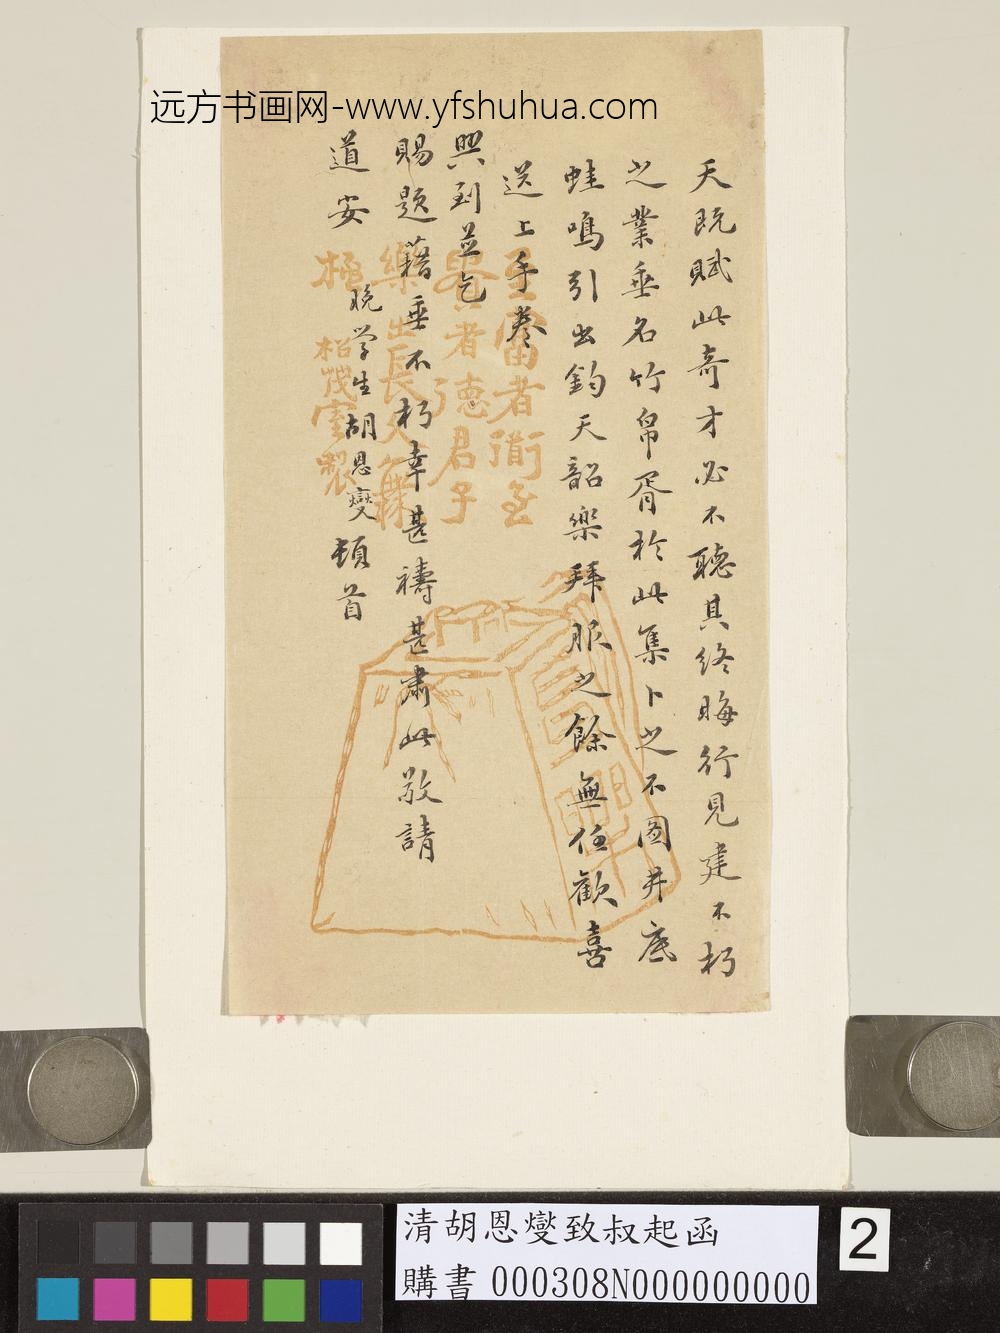 远方书画网-www.yfshuhua.com
天既賦此奇才必不聽其終晦行見建不朽
之業垂名竹帛胥於此集卜之不图井底
蛙鳴引出鈞天韶樂拜服之餘無任歡喜
送上手卷
興到並乞
賜題藉垂不朽幸甚禱甚肅此敬請
道安
晚学生胡恩燮頓首
至富者衜至
貴者德君子
樂出長久無
極
松茂室製
清胡恩燮致叔起函
購書 000308N000000000
2